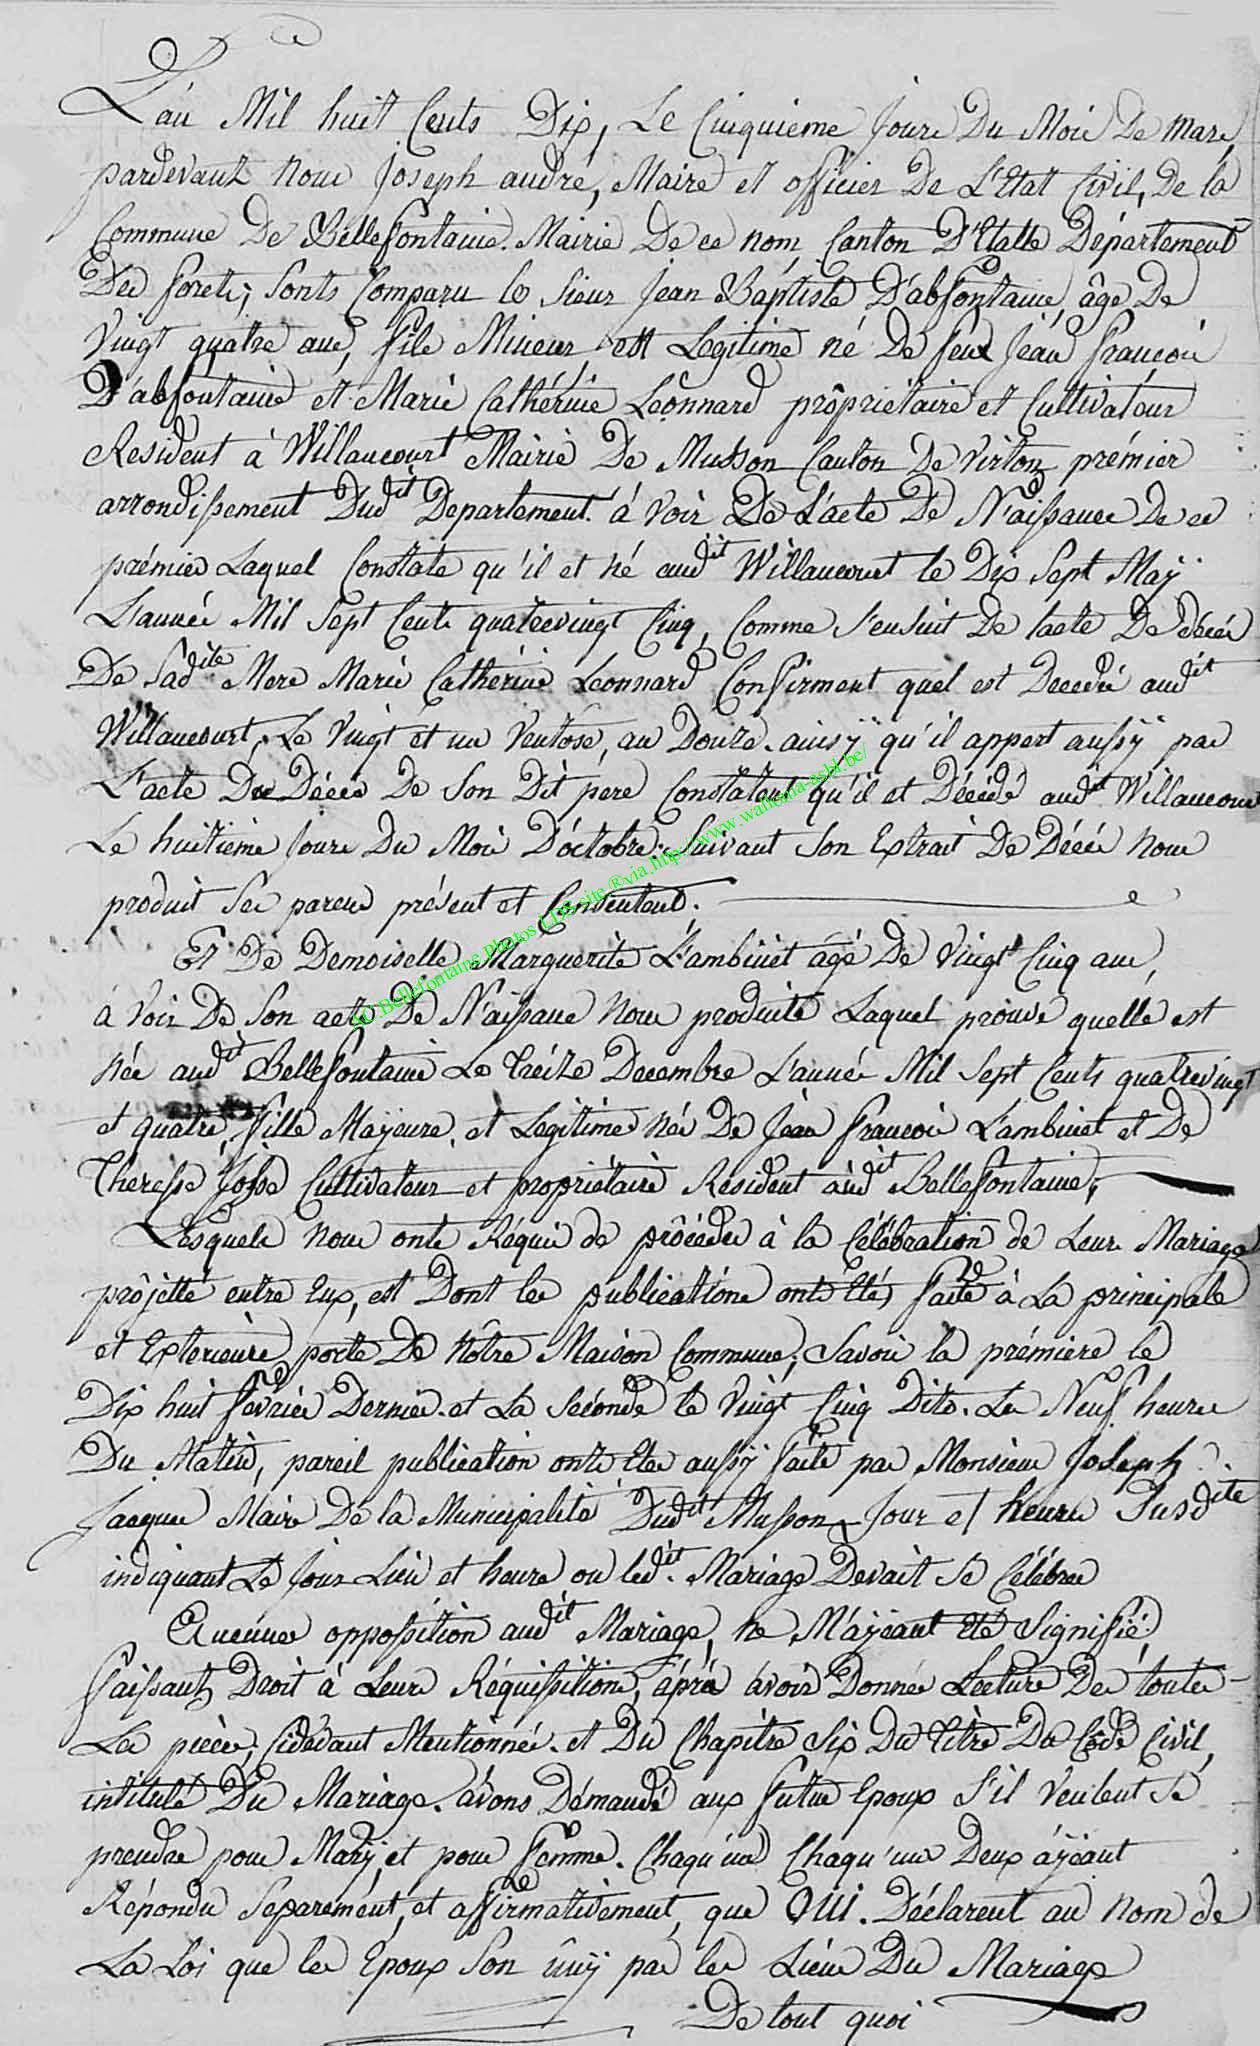 L'an Mil huit Cents Dix, Le Cinquieme Jours Du Mois De Mars,
pardevant Nous Joseph andré, Maire et officier De L'Etat Civil, De la
Commune De Bellefontaine. Mairie De ce nom, Canton D'Etalle Département
Des forets; Sonts Comparu le Sieur Jean Baptiste D'abfontaine, âge De
Vingt quatre ans, fils Mineur et Legitime né De feux Jean françois
D'abfontaine et Marie Cathérine Léonnard propriétaire et Cultivateur
Resident à Willancourt Mairie De Musson Canton De Virton prémier
arrondissement Dudit Departement. à Voir De L'acte De N'aissance De ce
prémier Laquel Constate qu'il et né audit Willancourt le Dix Sept Maÿ
L'année Mil Sept Cents quatrevingt Cinq, Comme S'ensuit De l'acte De décés
De Sadite Mere Marie Cathérine Leonnard Confirment quel est Decedée audit
Willancourt, Le Vingt et un Ventose, an Douze. ainsÿ qu'il appert aussÿ par
L'acte De Décés De Son Dit pére Constatant qu'il et Décédé audit Willancourt
Le huitiéme Jours Du Mois D'octobre. Suivant Son Extrait De Décés Nous
produit Ses parens présent et Consentent.
Et De Demoiselle Marguerite L'ambinet âgé De Vingt Cinq ans,
à Voir De Son acte De N'aissance Nous produite Laquel prouve quelle est
Née audit Bellefontaine Le Treize Decembre L'année Mil Sept Cents quatrevingt
et quatre, fille Majeure, et Legitime née De Jéan françois L'ambinet et De
Theresse Josse Cultivateur et propriétaire Résident audit Bellefontaine,
Lesquels Nous onts Réquis de prôcéder à la Célébration de Leurs Mariage
prôjetté entre Eux, est Dont les publications onts Etés faite à La principale
et Extérieure porte De Nôtre Maison Commune; Savoir la prémière le
Dix huit février Dernier. et La Séconde le Vingt Cinq Dito. Les Neuf heures
Du Matin, pareil publication onts Etes aussÿ faite par Monsieur Joseph
Jacques Maire De la Municipalité Dudit Musson Jour et heures Susdite
indiquant Le Jour Lieu et heure ou ledit Mariage Devait se Célébrer
Aucunes oppossition audit Mariage, ne M'aÿéant Eté Signifié.
faissant Droit à Leurs Réquissitions, après avoir Donnée Lecture De toutes
Les pièces, Cidévant Mentionnés. et Du Chapitre Six Du Titre Du Code Civil,
intitulé Du Mariage. avons Démandé aux futur Epoux S'il Veulent Se
prendre pour Marÿ et pour femme. Chaqu'un Chaqu'un Deux aÿéant
Répondu Separement, et affirmativement, que OUI. Déclarent au Nom de
La Loi que les Epoux Son ûnÿ par les Liéns Du Mariage
De tout quoi
AC Bellefontains Photos LDS site ® via http://www.wallonia-asbl.be/